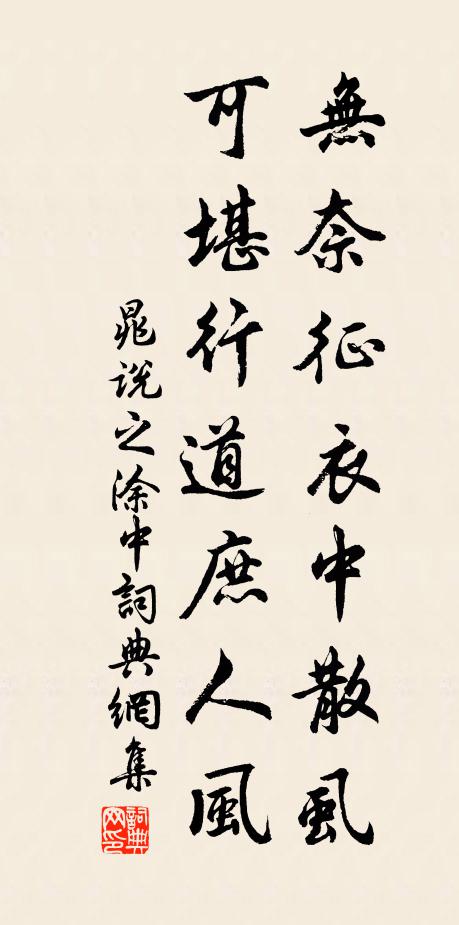 無奈征衣中散虱
可堪行道庶人風
晁說之涂中詞典網集
詞典网印